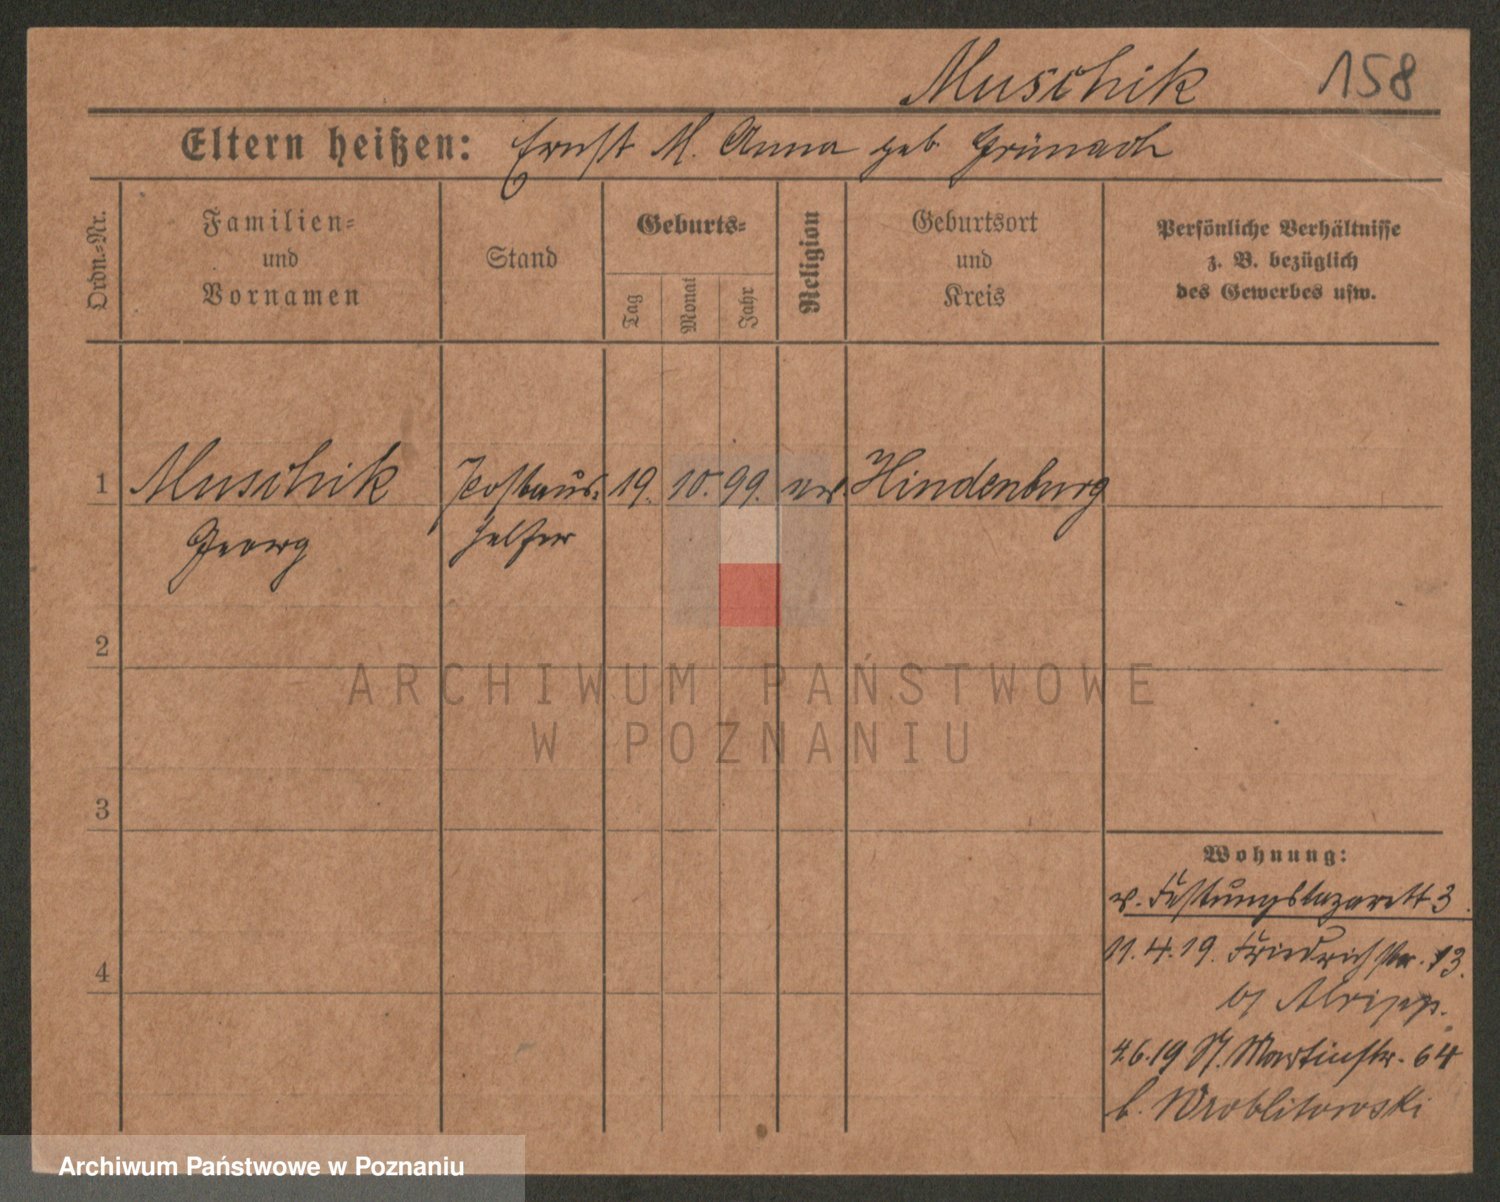 Muschik 158
Eltern heißen: Ernst M. Anna geb. Grünach
Ordn.=Nr.
Familien=
und
Vornamen
Stand
Geburts=
Tag
Monat
Jahr
Religion
Geburtsort
und
Kreis
Persönliche Verhältnisse
z. B. bezüglich
des Gewerbes usw.
1 Muschik Postaus= 19. 10. 99. ev. Hindenburg
Georg helfer
2
3
4
Wohnung:
v. Festungslazarett 3.
11.4.19. Friedrichstr. 13.
b/
4.6.19 St. Martinstr. 64
b. Wroblitowski
ARCHIWUM PAŃSTWOWE
W POZNANIU
Archiwum Państwowe w Poznaniu